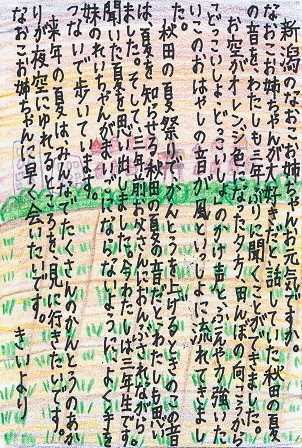 新潟のなおこお姉ちゃんお元気ですか。
なおこお姉ちゃんが大好きだと話していた秋田の夏
の音を、わたしも三年ぶりに聞くことができました。
お空がオレンジ色になった夕方、田んぼの向こうか
ら「どっこいしょーどっこいしょ」のかけ声と、ふえや力強いた
いこのおはやしの音が風といっしょに流れてきまし
た。
秋田の夏祭りで、かんとうを上げるときのこの音
は、夏を知らせる「秋田の夏の音」だとわたしも思い
ました。そして、三年前お父さんにおんぶされながら
聞いた夏を思い出しました。今、わたしは三年生です。
妹のれいちゃんがまいごにならないように、よく手を
つないで歩いています。
来年の夏はみんなでたくさんのかんとうのあか
りが夜空にゆれるところを、見に行きたいです。
なおこお姉ちゃんに早く会いたいです。 きいより